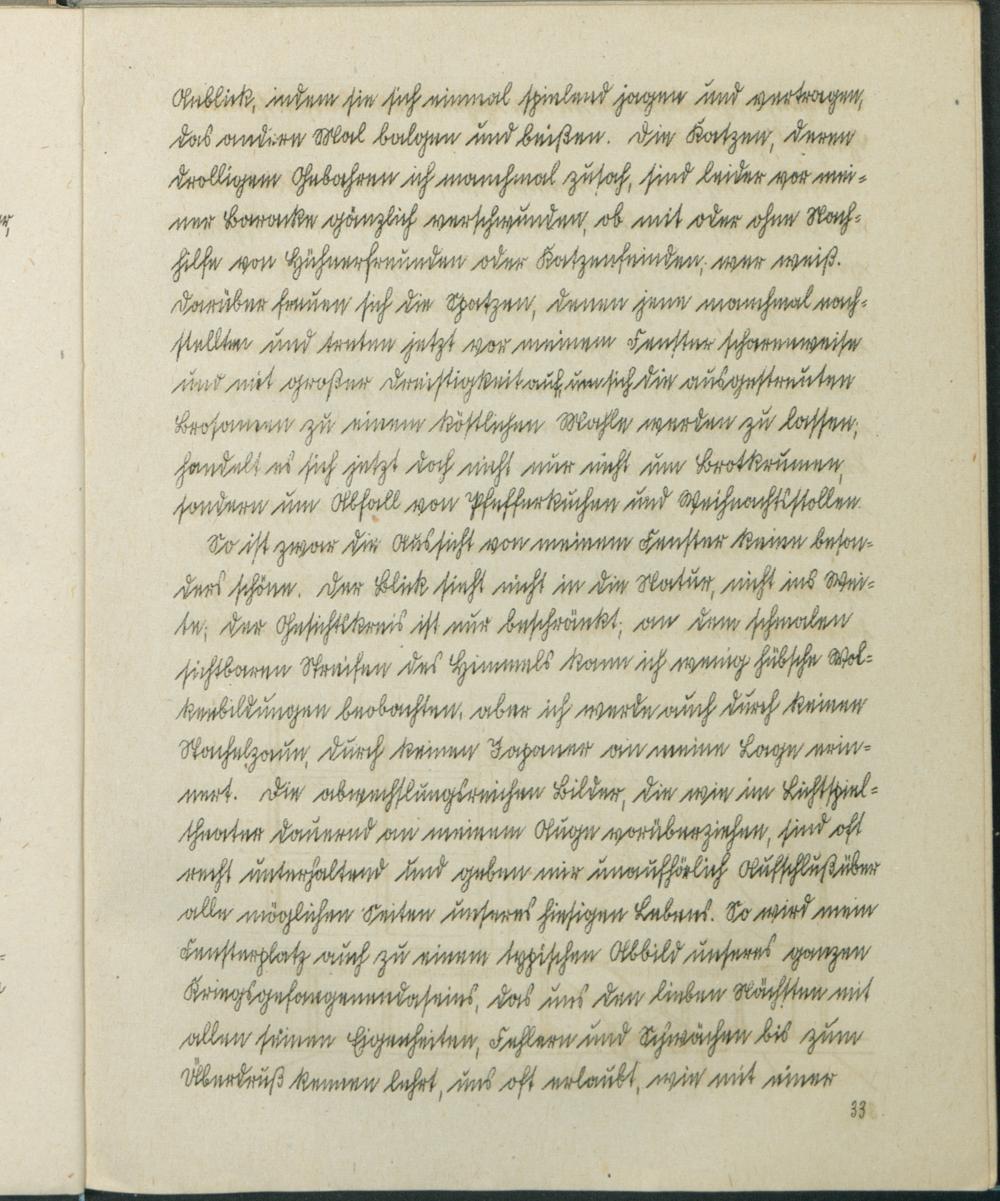 Anblick, indem sie sich einmal spielend jagen und vertragen,
das andere Mal balgen und beißen. Die Katzen, deren
drolligem Gebahren ich manchmal zusah, sind leider vor mei-
ner Baracke gänzlich verschwunden, ob mit oder ohne Nach-
hilfe von Hühnerfreunden oder Katzenfeinden, wer weiß.
Darüber freuen sich die Spatzen, denen jene manchmal nach-
stellten und treten jetzt vor meinem Fenster scharenweise
und mit großer Dreistigkeit auf, um sich die ausgestreuten
Brosamen zu einem köstlichen Mahle werden zu lassen;
handelt es sich jetzt doch nicht nur nicht um Brotkrumen,
sondern um Abfall von Pfefferkuchen und Weihnachtsstollen.
So ist zwar die Aussicht von meinem Fenster keine beson-
ders schöne. Der Blick sieht nicht in die Natur, nicht ins Wei-
te; der Gesichtskreis ist nur beschränkt; an dem schmalen
sichtbaren Streifen des Himmels kann ich wenig hübsche Wol-
kenbildungen beobachten, aber ich werde auch durch keinen
Stachelzaun, durch keinen Japaner an meine Lage erin-
nert. Die abwechslungsreichen Bilder, die wie im Lichtspiel-
theater dauernd an meinem Auge vorüberziehen, sind oft
recht unterhaltend und geben mir unaufhörlich Aufschluß über
alle möglichen Seiten unseres hiesigen Lebens. So wird mein
Fensterplatz auch zu einem typischen Abbild unseres ganzen
Kriegsgefangenendaseins, das uns den lieben Nächsten mit
allen seinen Eigenheiten, Fehlern und Schwächen bis zum
Überdruß kennen lehrt, uns oft erlaubt, wie mit einer
33